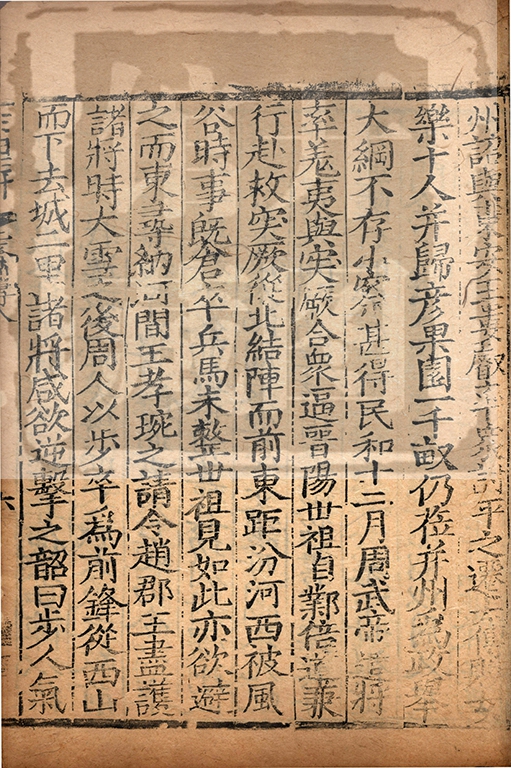 州詔與東安王婁叡率衆討平之遷太傅賜女
樂十人并歸彥果園一千畝仍莅并州爲政舉
大綱不存小察甚得民和十二月周武帝遣將
率羌夷與突厥合衆逼晋陽世祖自鄴倍道兼
行赴救突厥從北結陣而前東距汾河西被風
谷時事既倉卒兵馬未整世祖見如此亦欲避
之而東尋納河間王孝琬之請令趙郡王盡護
諸將時大雪之後周人以步卒爲前鋒從西山
而下去城二里諸將咸欲逆擊之韶曰步人氣